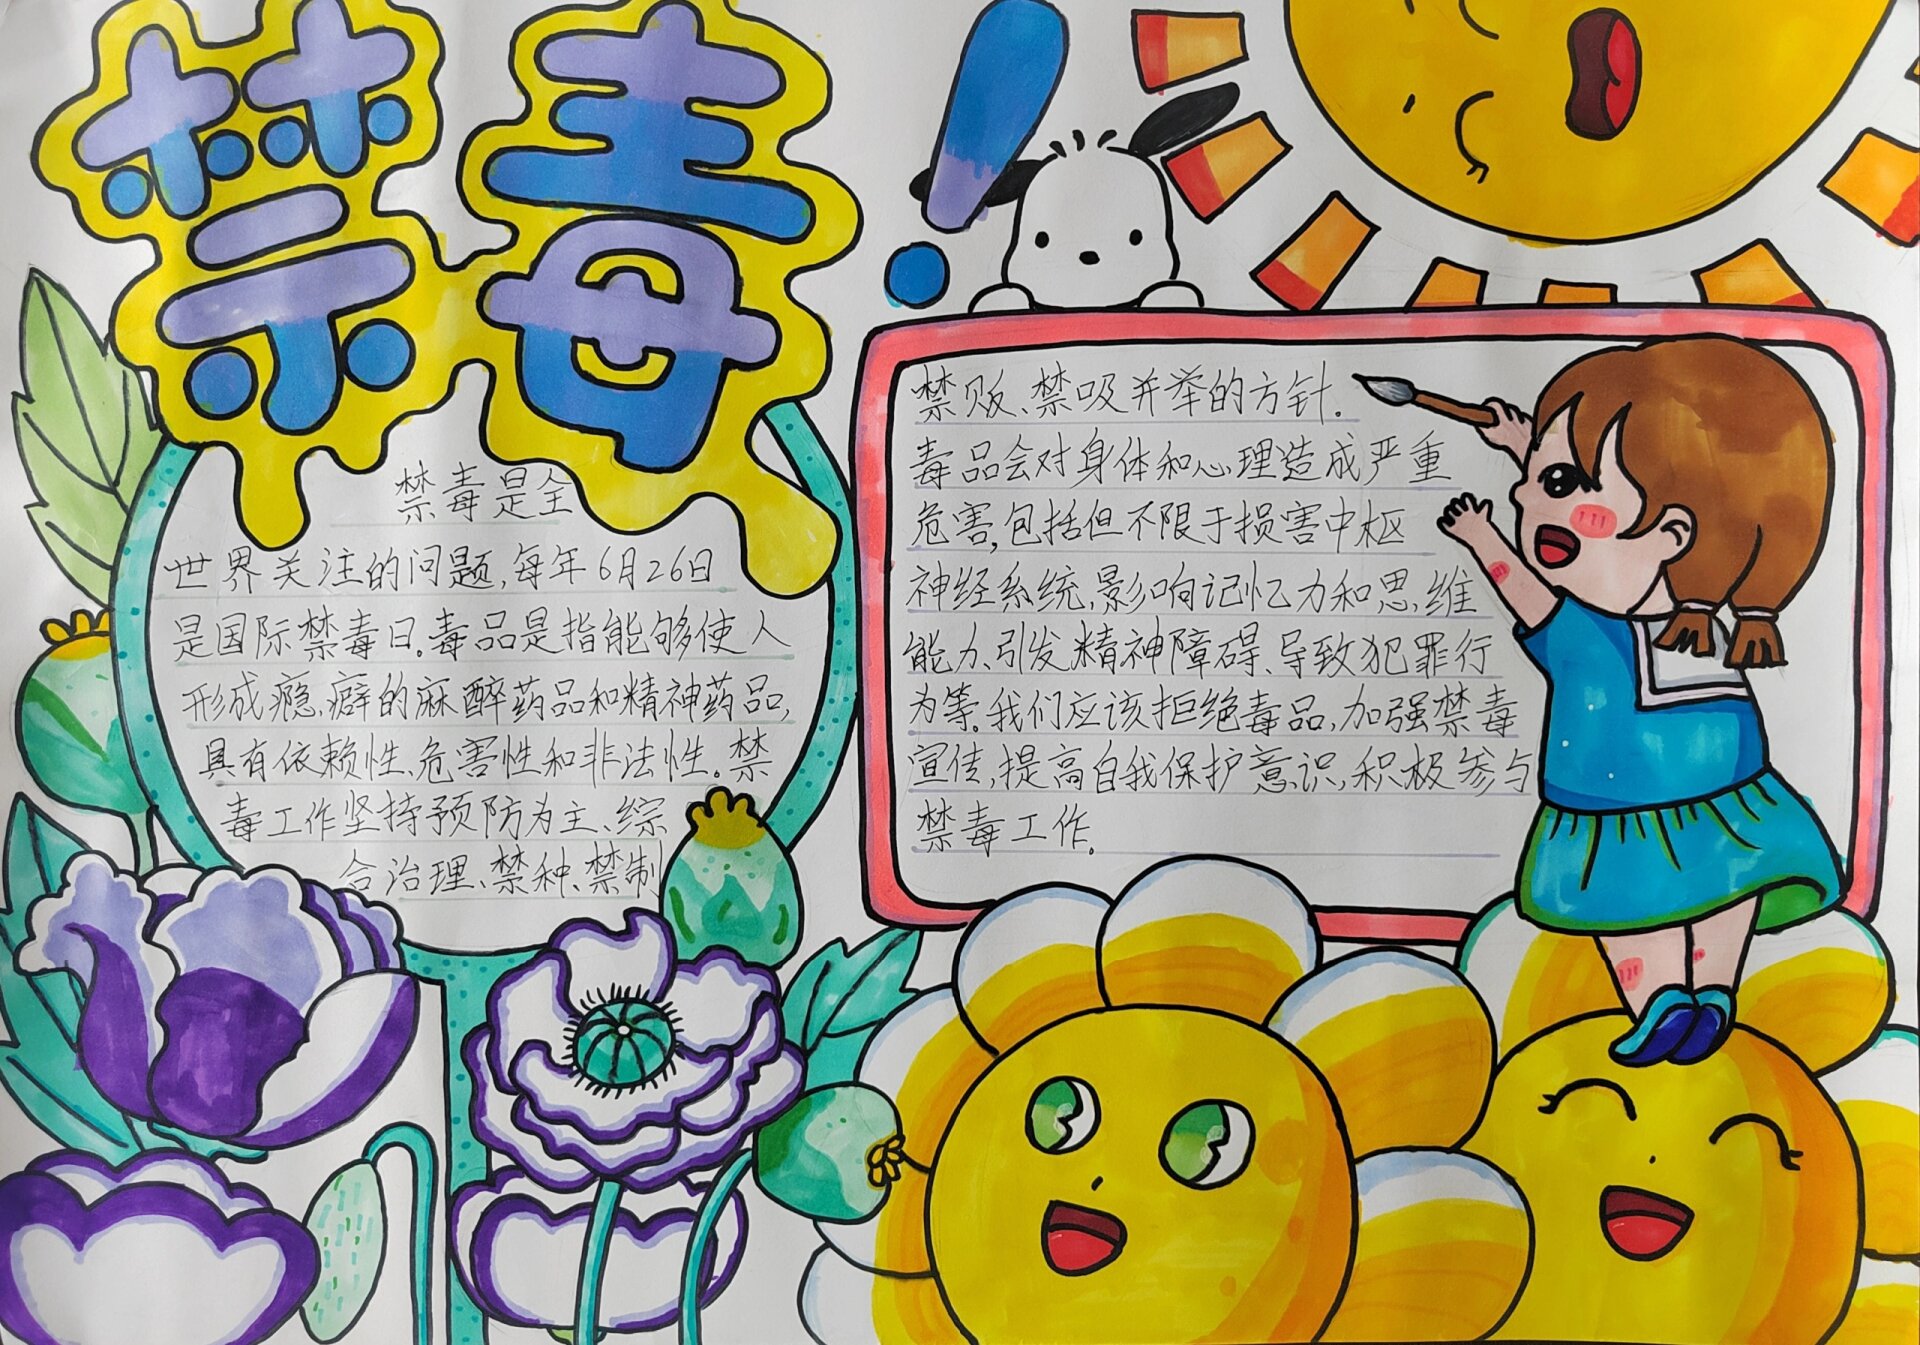 禁毒!
禁毒是全
世界关注的问题,每年6月26日
是国际禁毒日。毒品是指能够使人
形成瘾、癖的麻醉药品和精神药品,
具有依赖性、危害性和非法性。禁
毒工作坚持预防为主、综
合治理、禁种、禁制
禁贩、禁吸并举的方针。
毒品会对身体和心理造成严重
危害,包括但不限于损害中枢
神经系统,影响记忆力和思维
能力、引发精神障碍、导致犯罪行
为等。我们应该拒绝毒品,加强禁毒
宣传,提高自我保护意识,积极参与
禁毒工作。